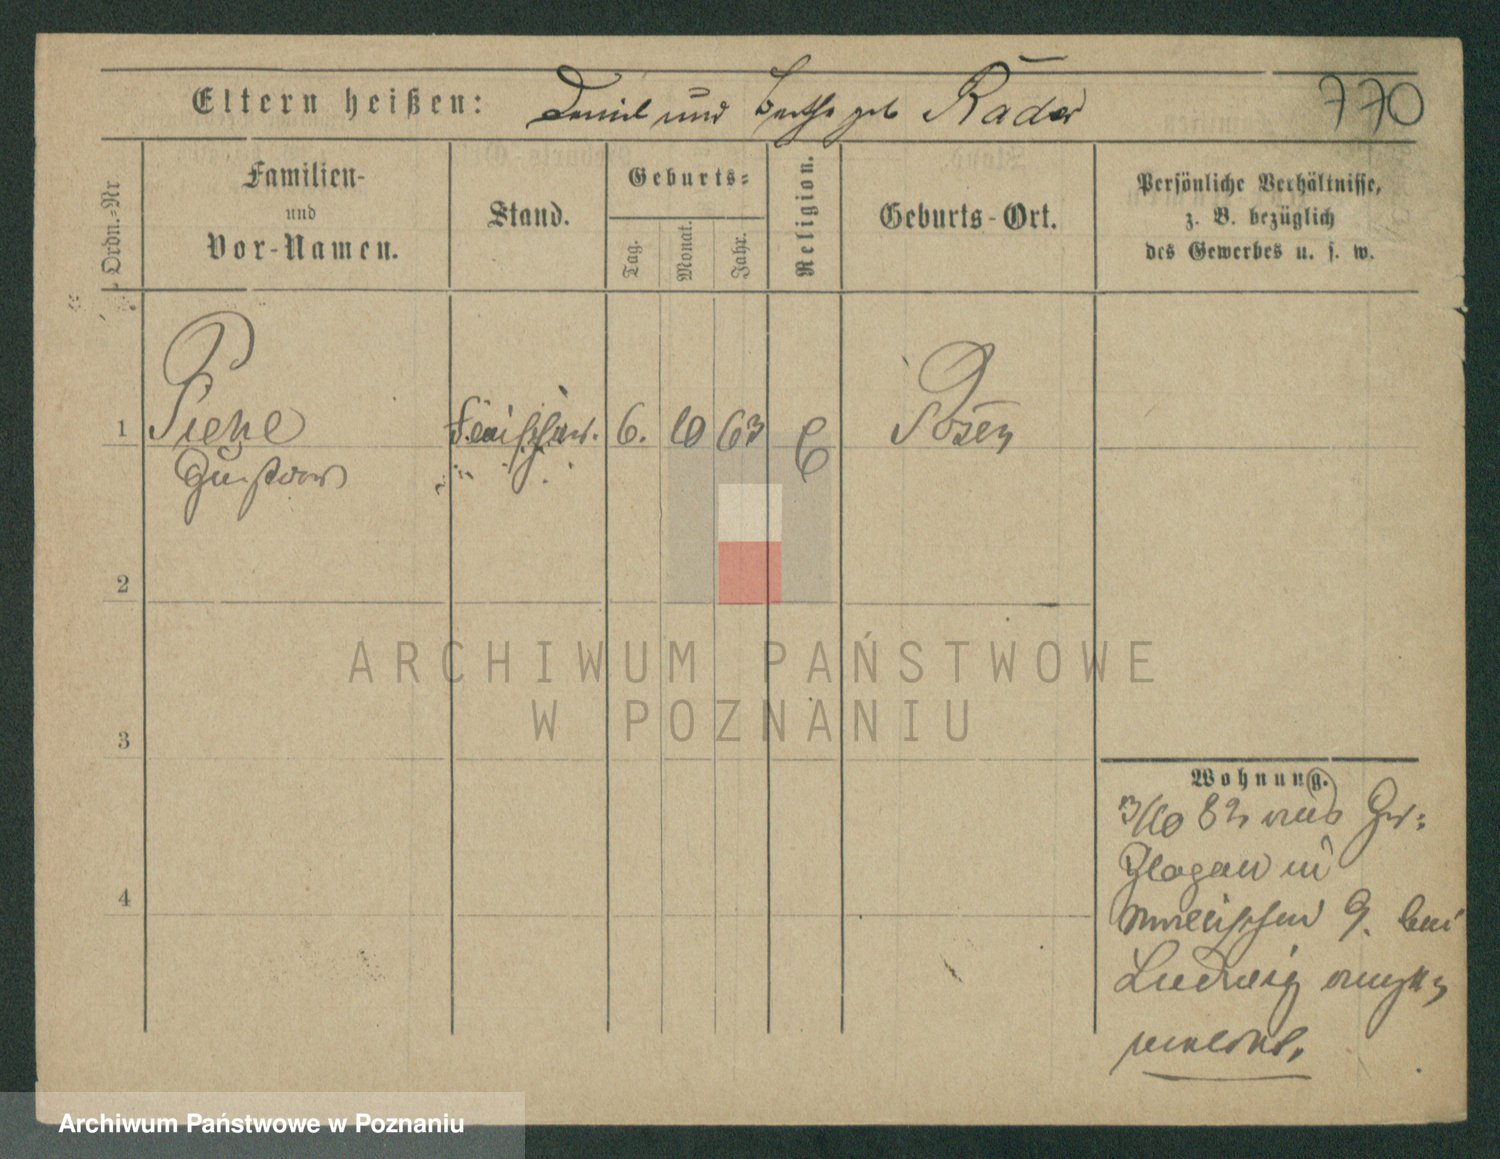 Eltern heißen: Daniel und Bertha geb Räder
770
Ordn.-Nr
Familien-
und
Vor-Namen.
Stand.
Geburts-
Tag.
Monat.
Jahr.
Religion.
Geburts-Ort.
Persönliche Verhältnisse,
z. B. bezüglich
des Gewerbes u. s. w.
1 Piehl 6. 10 63 E Posen
Gustav
2
3
4
ARCHIWUM PAŃSTWOWE
W POZNANIU
Wohnung.
3/10 82 aus Gr.
Glogau in
9. bei
Ludwig
gemeldet.
Archiwum Państwowe w Poznaniu